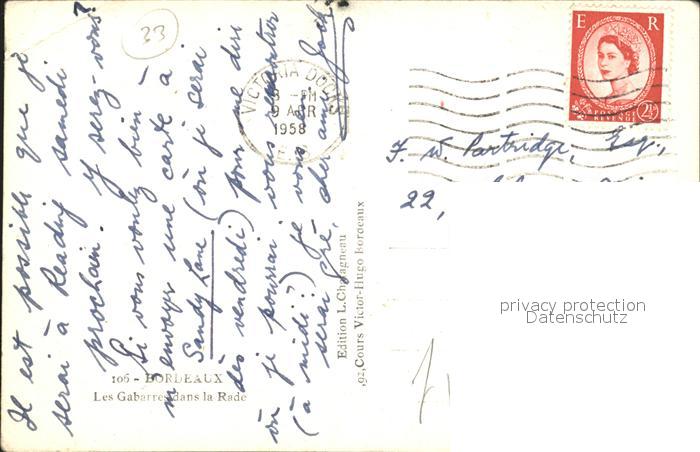 Il est possible que je
serai à Reading samedi
prochain. Y serez-vous?
Si vous voulez bien
m'envoyer une carte à
Sandy Lane (où je serai
dès vendredi) pour me dire
où je pourrai vous rencontrer
(à midi?) je vous en
serai gré, cher ami
33
VICTORIA DOCKS
9 APR
1958
E R
POSTAGE
REVENUE
2½
F. W. Partridge, Esq.,
22,
Edition L. Chatagneau
92, Cours Victor-Hugo Bordeaux
106 - BORDEAUX
Les Gabarres dans la Rade
privacy protection
Datenschutz